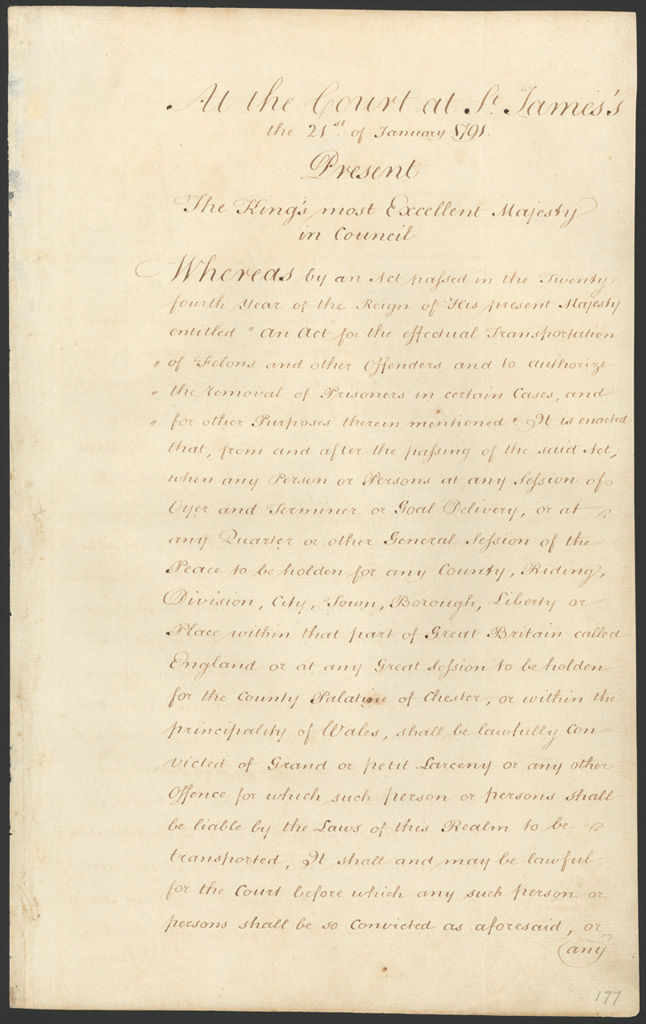 At the Court at St. James's
the 21st. of January 1791.
Present
The King's most Excellent Majesty
in Council
Whereas by an Act passed in the Twenty
fourth Year of the Reign of His present Majesty
entitled " An Act for the effectual Transportation
" of Felons and other Offenders and to authorize
" the removal of Prisoners in certain Cases, and
" for other Purposes therein mentioned". It is enacted
that, from and after the passing of the said Act,
when any Person or Persons at any Session of
Oyer and Terminer or Goal Delivery, or at
any Quarter or other General Session of the
Peace to be holden for any County, Riding,
Division, City, Town, Borough, Liberty or
Place within that part of Great Britain called
England or at any Great Session to be holden
for the County Palatine of Chester, or within the
principality of Wales, shall be lawfully con-
victed of Grand or petit Larceny or any other
Offence for which such person or persons shall
be liable by the Laws of this Realm to be
transported, It shall and may be lawful
for the Court before which any such person or
persons shall be so Convicted as aforesaid, or
any
177